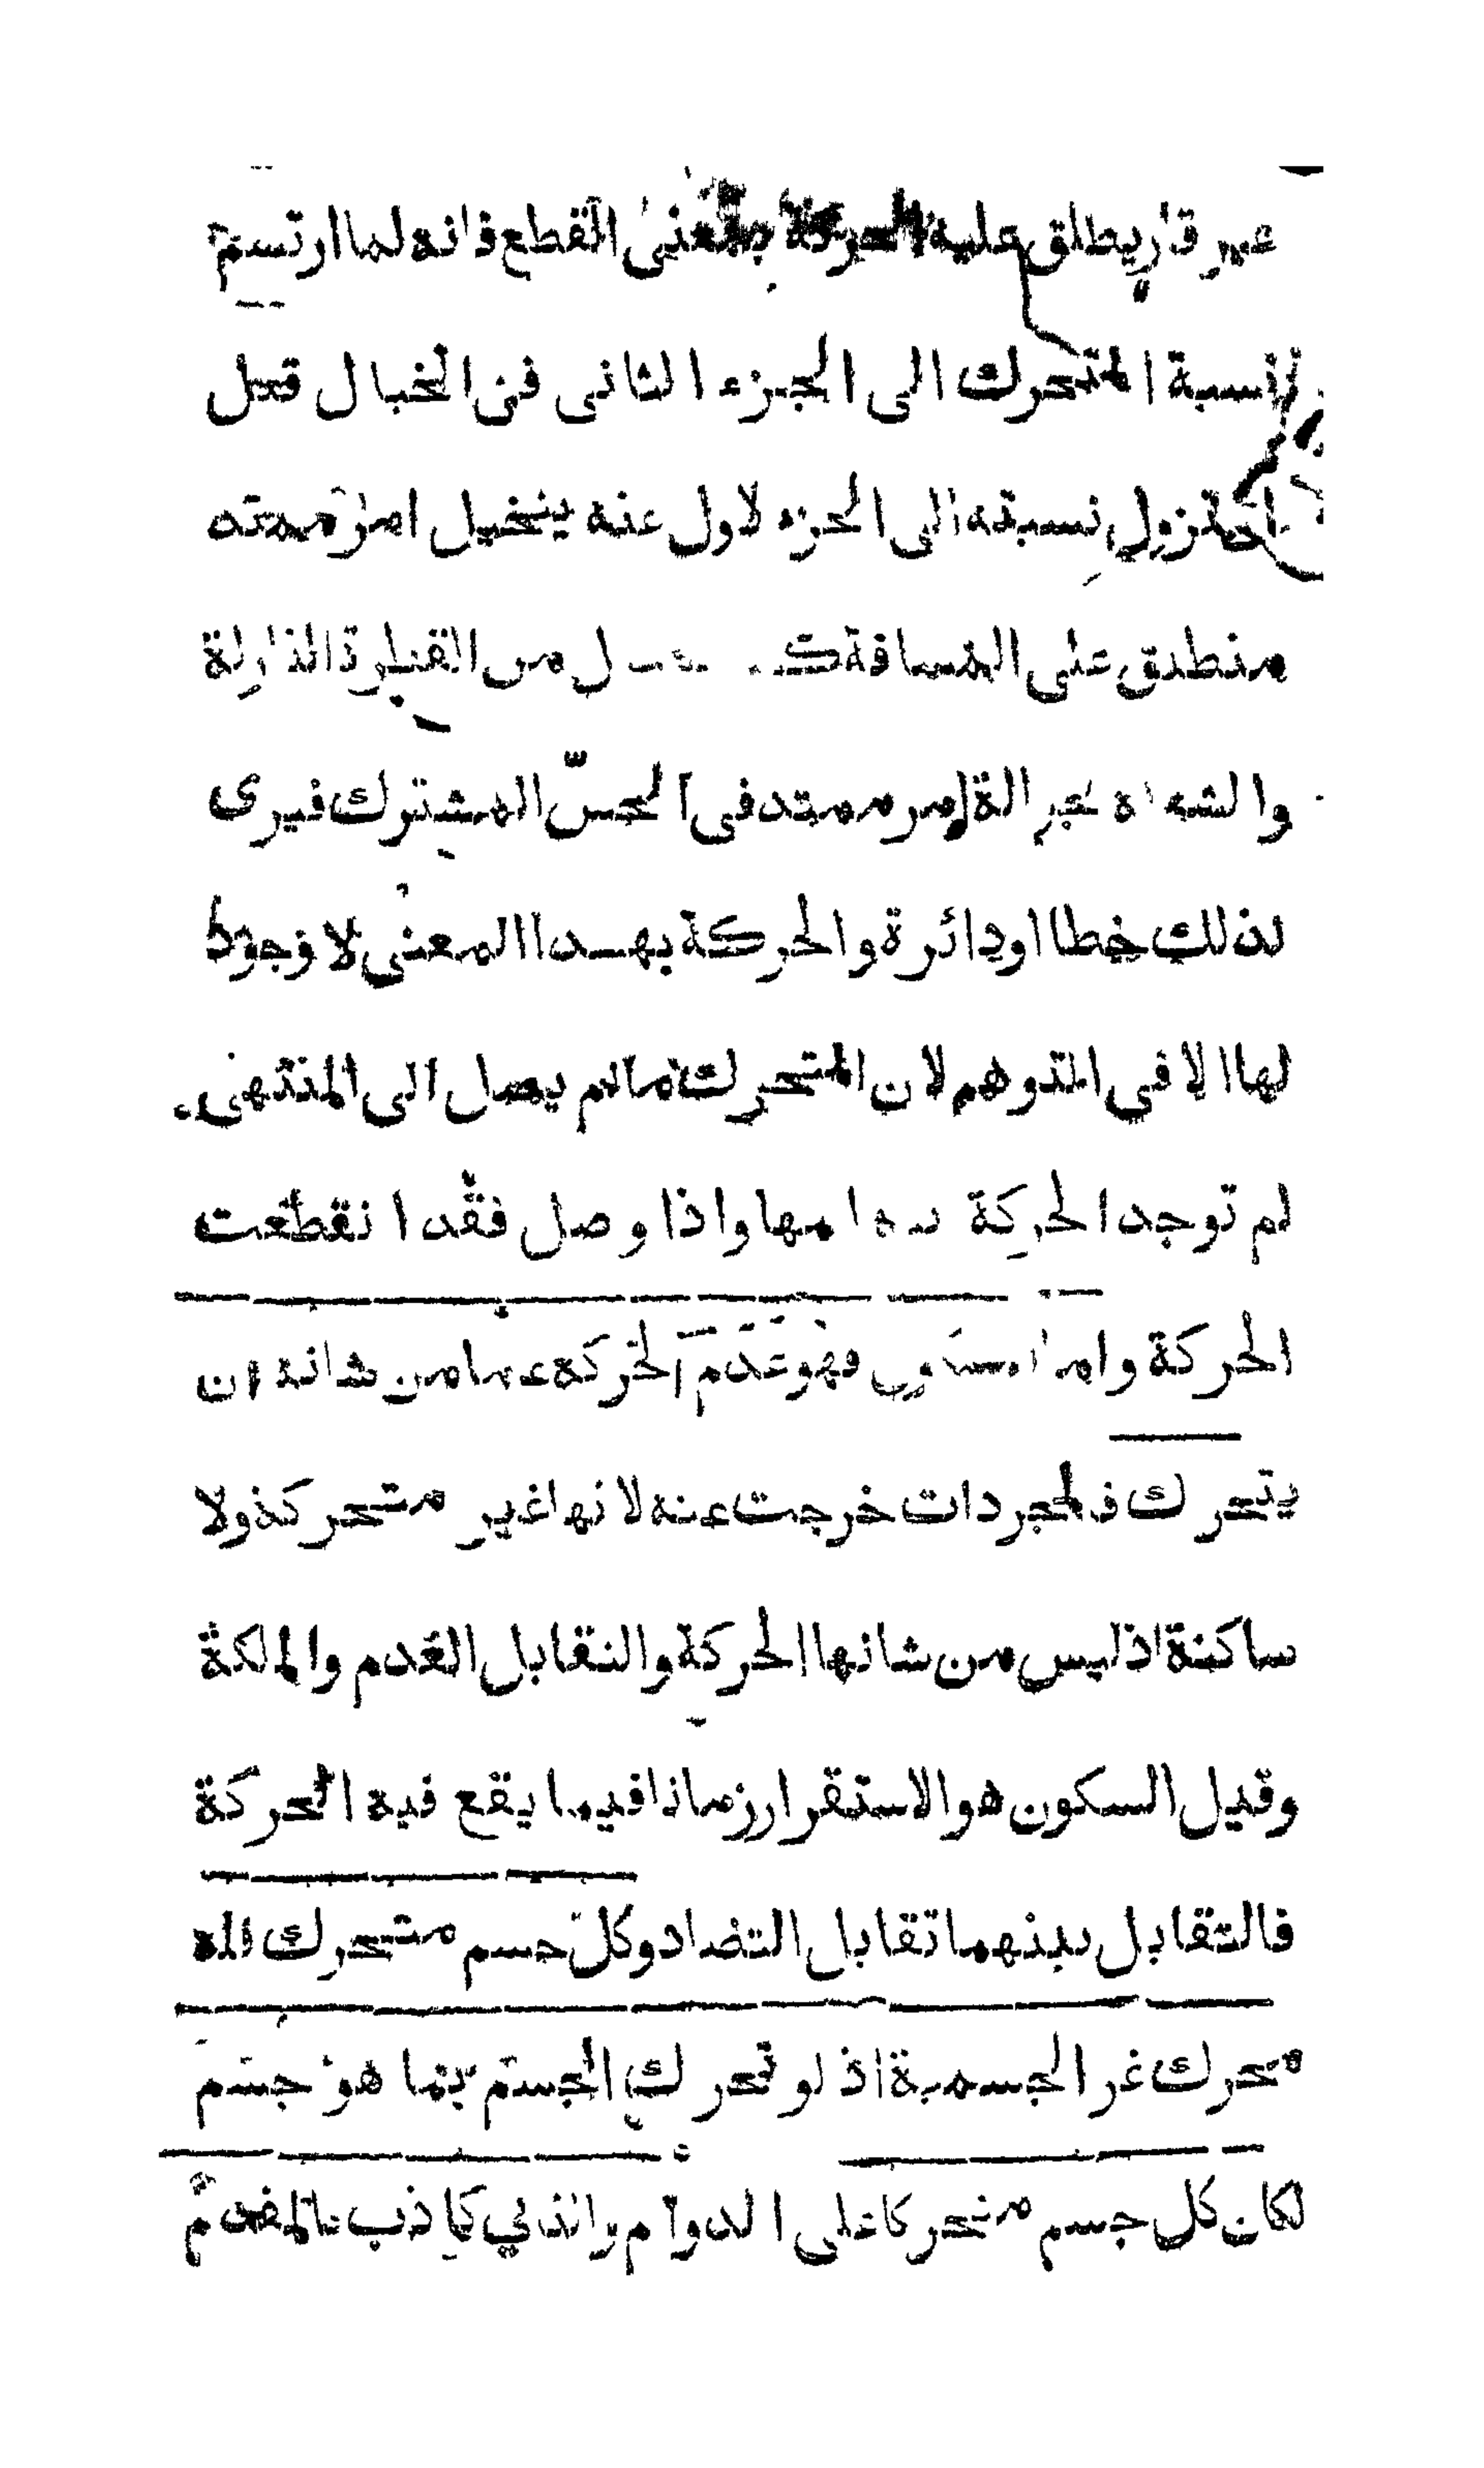 غير قار يطلق عليه الحركة بمعنى القطع فانه لما ارتسم
نسبة المتحرك الى الجزء الثانى فى الخيال قبل
ان تزول نسبته الى الجزء لاول عنه يتخيل امر ممتد
منطبق على المسافة من القطرة النازلة
والشعلة الجوالة امر ممتد فى الحسّ المشترك فيرى
لذلك خطا او دائرة والحركة بهذا المعنى لا وجود
لها الا فى التوهم لان المتحرك ما لم يصل الى المنتهى
لم توجد الحركة بتمامها واذا وصل فقد انقطعت
الحركة واما السكون فهو عدم الحركة عما من شانه ان
يتحرك فالمجردات خرجت عنه لانها غير متحركة ولا
ساكنة اذ ليس من شانها الحركة والتقابل العدم والملكة
وقيل السكون هو الاستقرار زمانا فيما يقع فيه الحركة
فالتقابل بينهما تقابل التضاد وكل جسم متحرك فله
محرك غير الجسمية اذ لو تحرك الجسم بما هو جسم
لكان كل جسم متحركا على الدوام والتالي كاذب فالمقدم